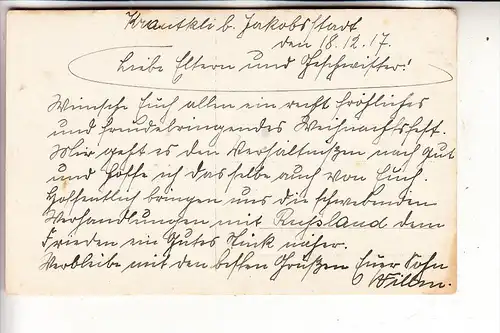 Krautkli b. Jakobsstadt
den 18.12.17.
Liebe Eltern und Geschwister!
Wünsche Euch allen ein recht fröhliches
und freudebringendes Weihnachtsfest.
Mir geht es den Verhältnißen nach Gut
und hoffe ich dasselbe auch von Euch.
Hoffentlich bringen uns die schwebenden
Verhandlungen mit Rußland dem
Frieden ein Gutes Stück näher.
Verbleibe mit den besten Grüßen Euer Sohn
Willm.